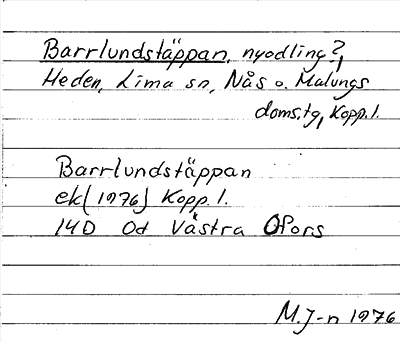 Barrlundstäppan, nyodling?,
Heden, Lima sn, Nås o. Malungs
doms.tg, Kopp.l.
Barrlundstäppan
ek (1976) Kopp.l.
14D Od Västra Ofors
M.J-n 1976